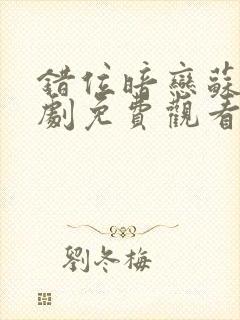 錯位暗戀蘇
劇免費觀看
劉冬梅